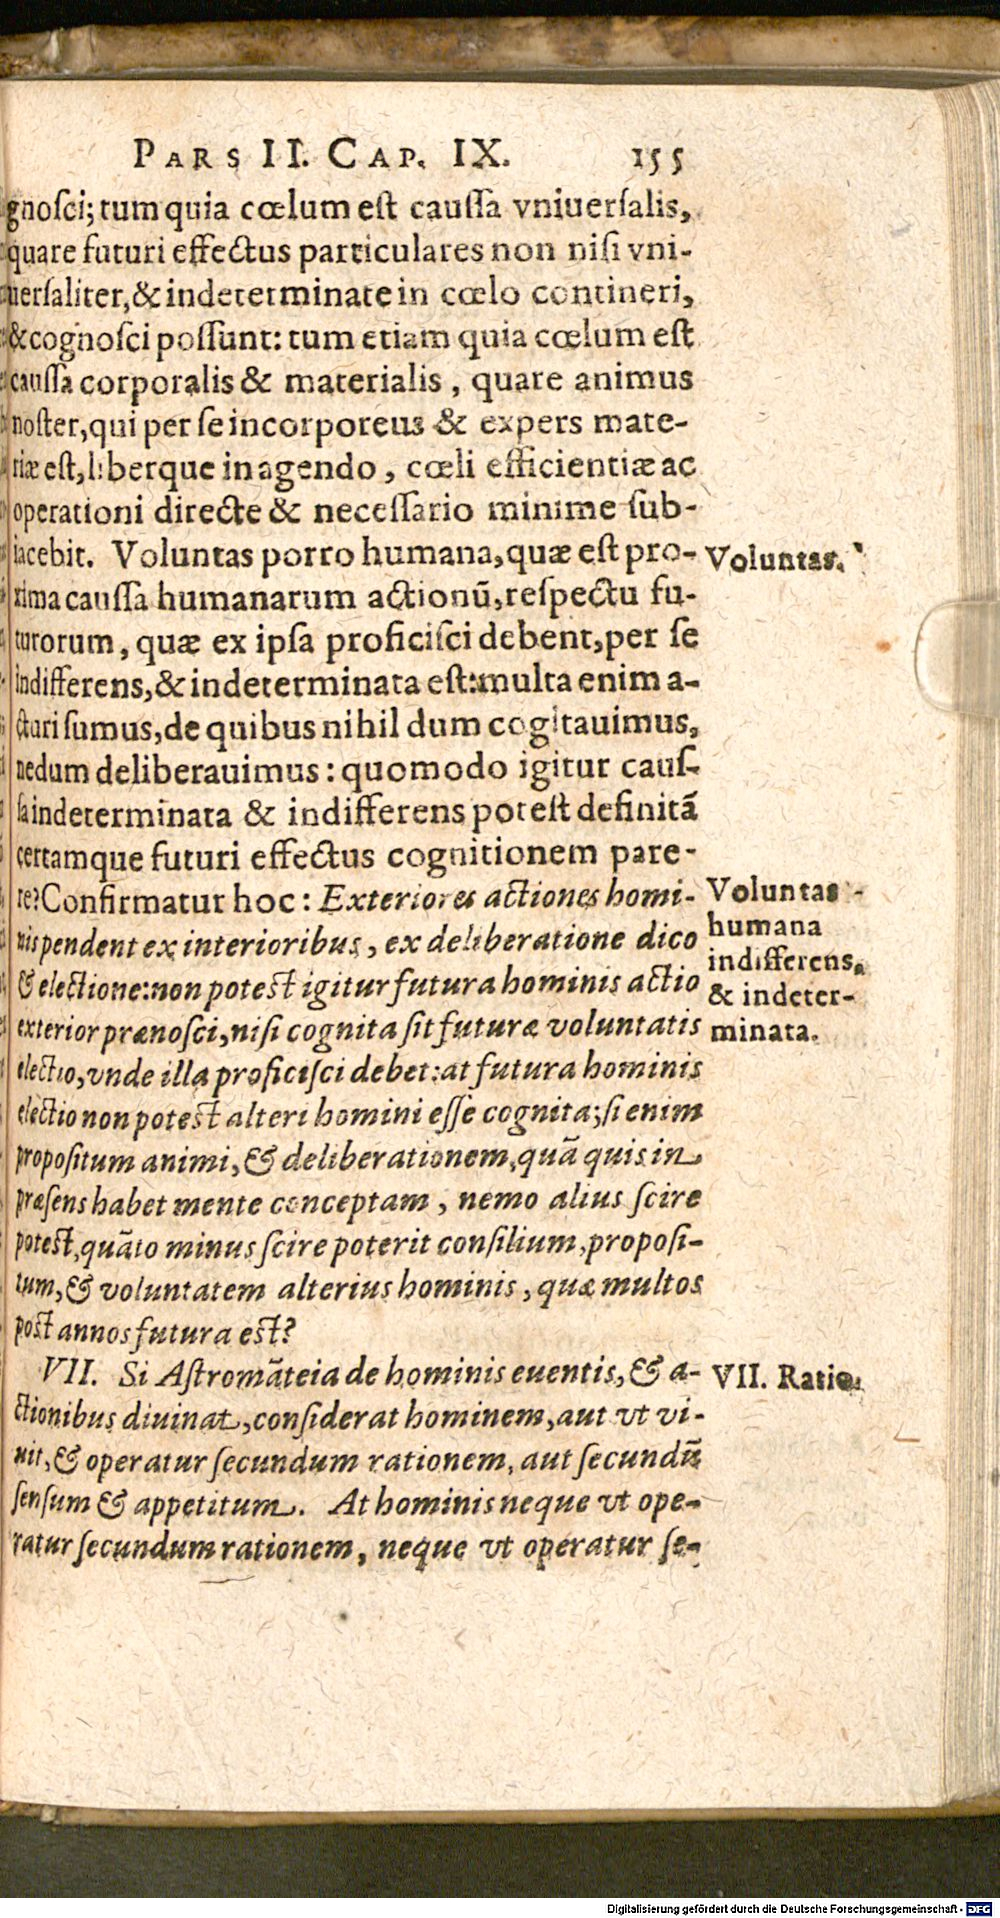 PARS II. CAP. IX. 155
gnoſci; tum quia cœlum eſt cauſſa vniuerſalis,
quare futuri effectus particulares non niſi vni-
uerſaliter, & indeterminate in cœlo contineri,
& cognoſci poſſunt: tum etiam quia cœlum eſt
cauſſa corporalis & materialis, quare animus
noſter, qui per ſe incorporeus & expers mate-
riæ eſt, liberque in agendo, cœli efficientiæ ac
operationi directe & neceſſario minime ſub-
iacebit. Voluntas porro humana, quæ eſt pro-
Voluntas.
xima cauſſa humanarum actionũ, reſpectu fu-
turorum, quæ ex ipſa proficiſci debent, per ſe
indifferens, & indeterminata eſt: multa enim a-
cturi ſumus, de quibus nihil dum cogitauimus,
nedum deliberauimus: quomodo igitur cauſ-
ſa indeterminata & indifferens poteſt definitã
certamque futuri effectus cognitionem pare-
re? Confirmatur hoc: Exteriores actiones homi-
nis pendent ex interioribus, ex deliberatione dico
& electione: non poteſt igitur futura hominis actio
exterior prænoſci, niſi cognita ſit futuræ voluntatis
Voluntas
humana
indifferens,
& indeter-
minata.
electio, vnde illa proficiſci debet: at futura hominis
electio non poteſt alteri homini eſſe cognita; ſi enim
propoſitum animi, & deliberationem, quã quis in
præſens habet mente conceptam, nemo alius ſcire
poteſt, quãto minus ſcire poterit conſilium, propoſi-
tum, & voluntatem alterius hominis, quæ multos
poſt annos futura eſt?
VII. Si Aſtromãteia de hominis euentis, & a-
VII. Ratio.
ctionibus diuinat, conſiderat hominem, aut vt vi-
uit, & operatur ſecundum rationem, aut ſecundũ
ſenſum & appetitum. At hominis neque vt ope-
ratur ſecundum rationem, neque vt operatur ſe-
Digitalisierung gefördert durch die Deutsche Forschungsgemeinschaft - DFG